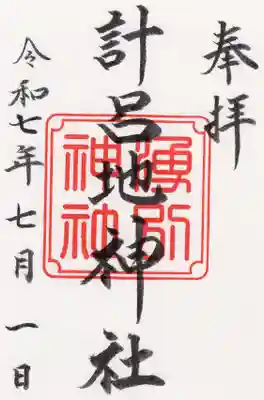 奉拝
計呂地神社
令和七年七月一日
湧別神社